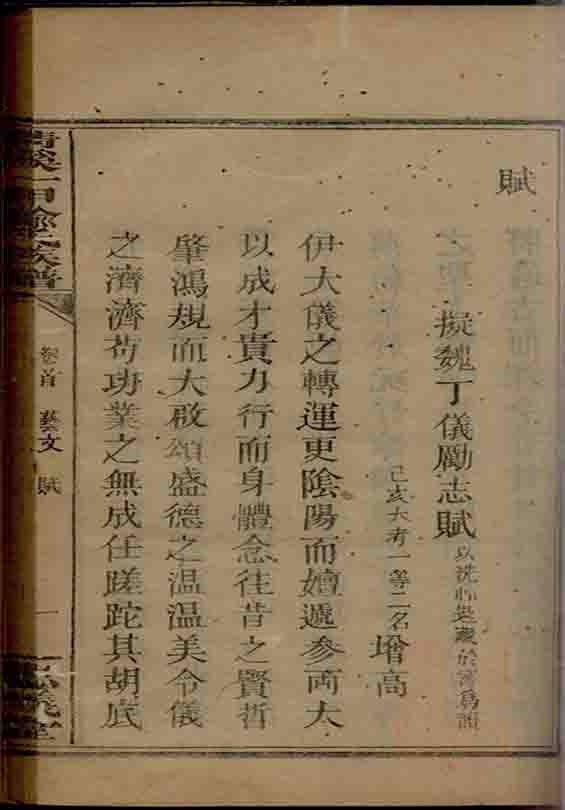 賦
擬魏丁儀勵志賦以洗心
己亥大考一等二名 增高
伊大儀之轉運更陰陽而嬗遞參兩太
以成才貴力行而身體念往昔之賢哲
肇鴻規而大啟頌盛德之温温美令儀
之濟濟苟功業之無成任蹉跎其胡底
族譜
卷首 藝文 賦 一